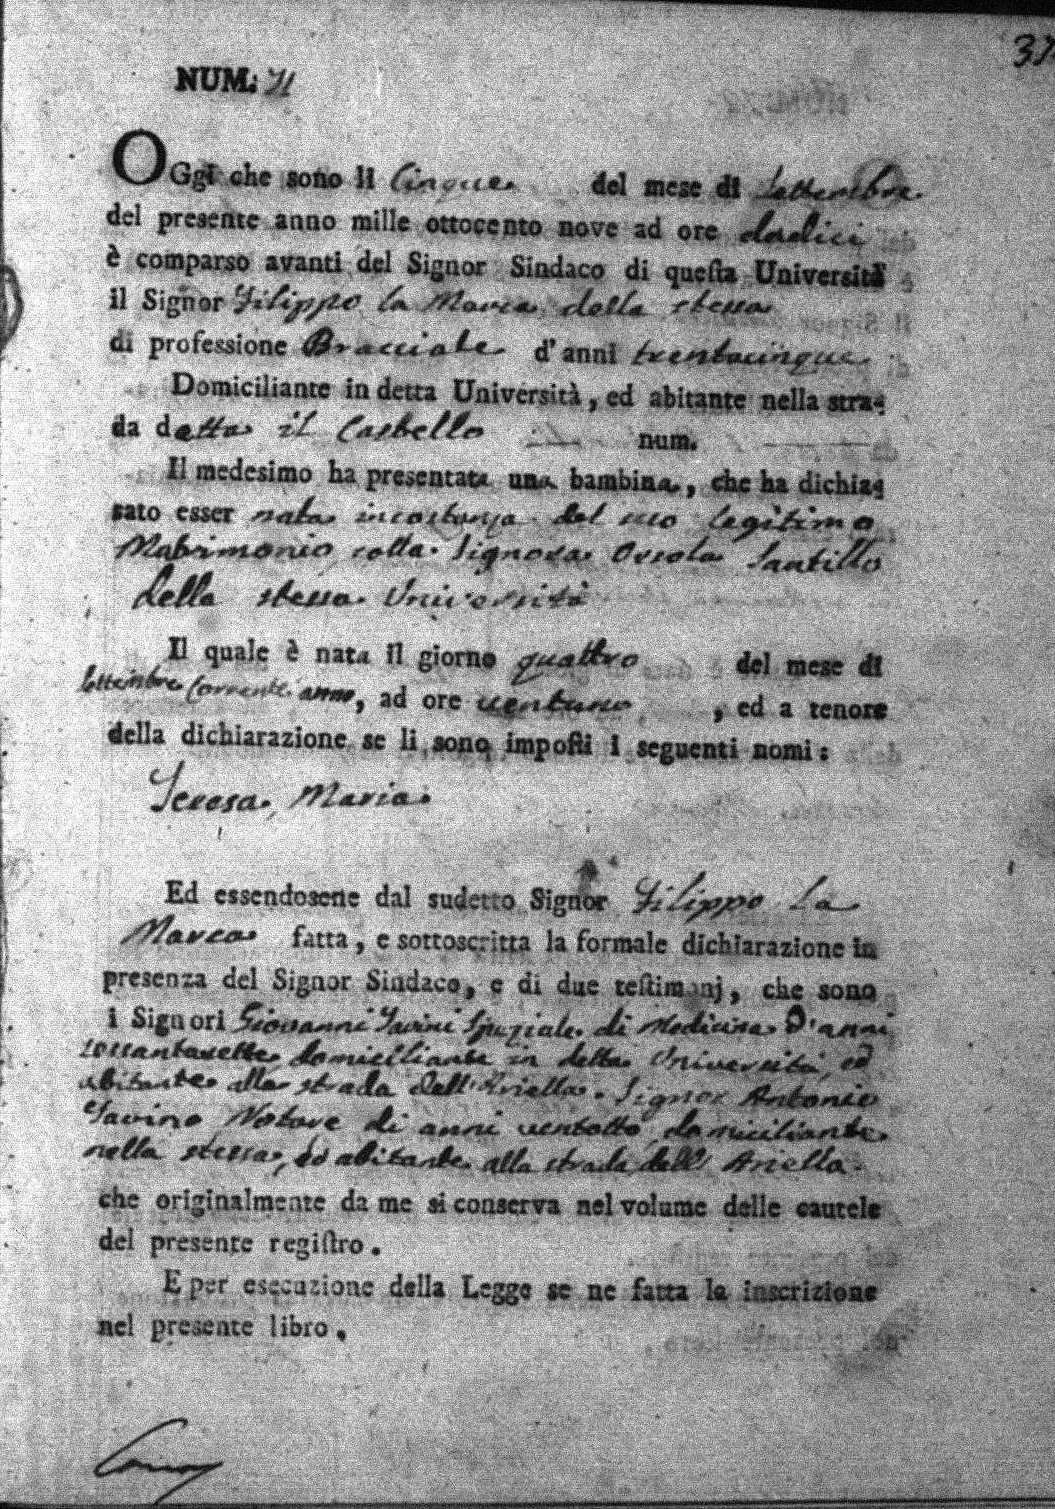 37
NUM: 71
OGgi che sono li Cinque del mese di Settembre
del presente anno mille ottocento nove ad ore dodici
è comparso avanti del Signor Sindaco di questa Università
il Signor Filippo la Marca della stessa
di professione Bracciale d'anni trentacinque
Domiciliante in detta Università, ed abitante nella stra-
da detta il Castello num.
Il medesimo ha presentata una bambina, che ha dichia-
rato esser nata incostanza del suo legitimo
Matrimonio colla Signora Orsola Santillo
della stessa Università
Il quale è nata il giorno quattro del mese di
Settembre Corrente anno, ad ore ventuno, ed a tenore
della dichiarazione se li sono imposti i seguenti nomi:
Teresa, Maria
Ed essendosene dal sudetto Signor Filippo La
Marca fatta, e sottoscritta la formale dichiarazione in
presenza del Signor Sindaco, e di due testimonj, che sono
i Signori Giovanni Speziale di Medicina d'anni
sessantasette, domiciliante in detta Università, ed
abitante alla strada dell'Ariella. Signor Antonio
Notare di anni ventotto domiciliante
nella stessa, ed abitante alla strada dell' Ariella
che originalmente da me si conserva nel volume delle cautele
del presente registro.
E per esecuzione della Legge se ne fatta la inscrizione
nel presente libro.